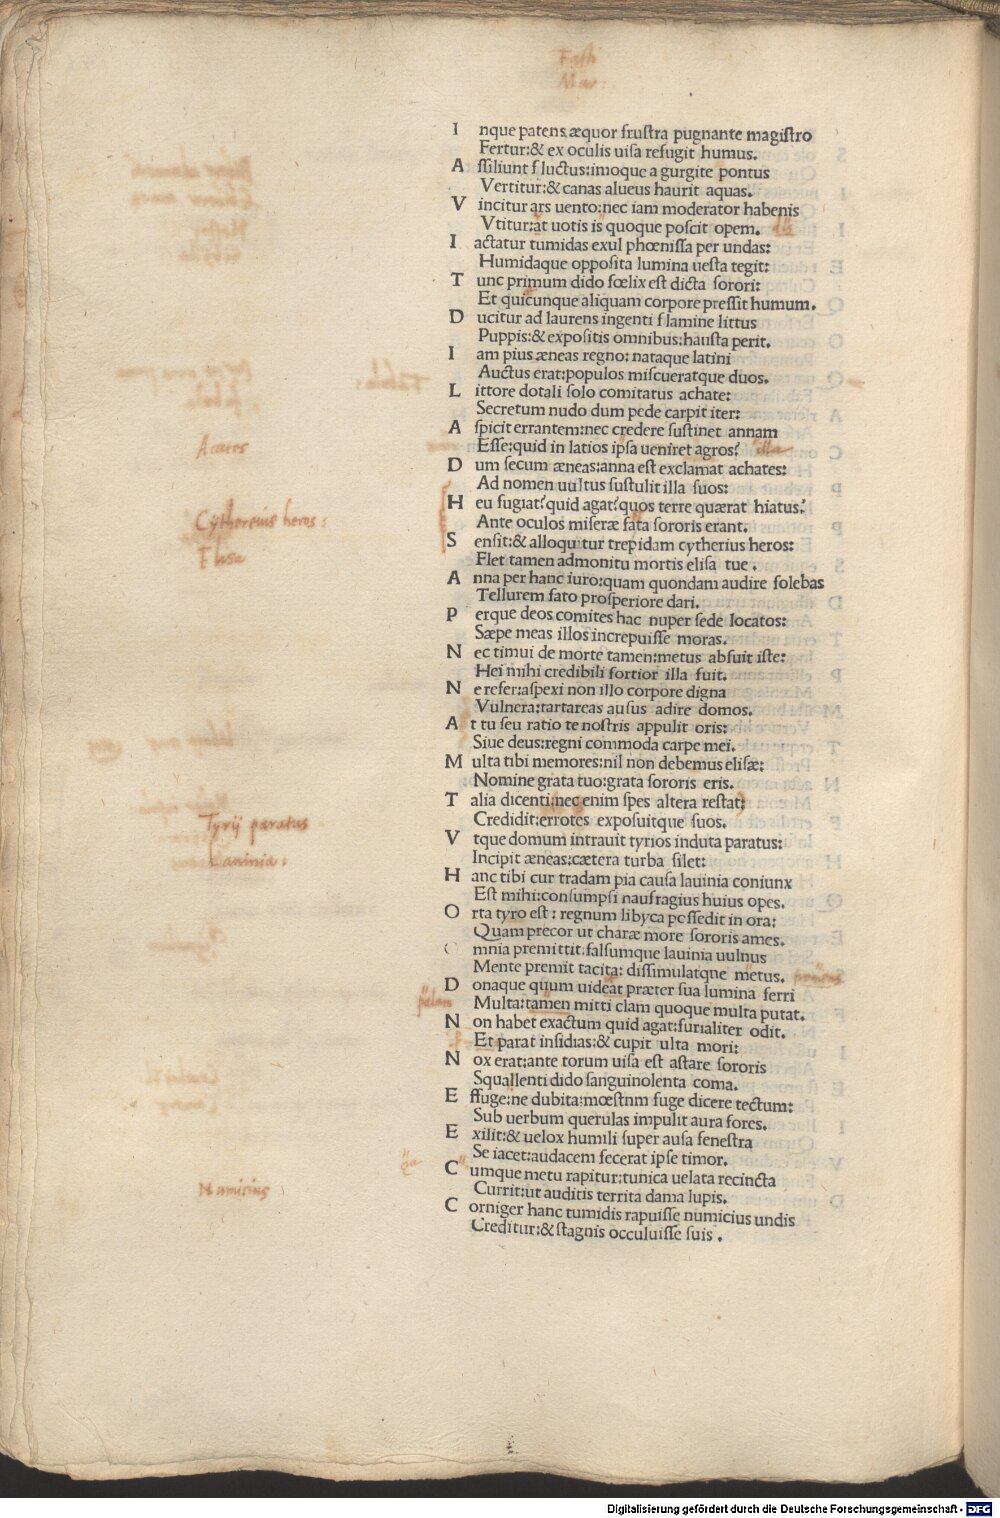 Fasti
Mar:
I nque patens.æquor frustra pugnante magistro
Fertur:& ex oculis uisa refugit humus.
A ssiliunt fluctus:imoque a gurgite pontus
Vertitur:& canas alueus haurit aquas.
V incitur ars uento:nec iam moderator habenis
Vtitur:at uotis is quoque poscit opem.
I actatur tumidas exul phœnissa per undas:
Humidaque opposita lumina uesta tegit:
T unc primum dido fœlix est dicta sorori:
Et quicunque aliquam corpore pressit humum.
D ucitur ad laurens ingenti flamine littus
Puppis:& expositis omnibus:hausta perit.
I am pius æneas regno:nataque latini
Auctus erat:populos miscueratque duos.
L ittore dotali solo comitatus achate:
Secretum nudo dum pede carpit iter:
A spicit errantem:nec credere sustinet annam
Esse:quid in latios ipsa ueniret agros? illa
D um secum æneas:anna est exclamat achates:
Ad nomen uultus sustulit illa suos:
H eu fugiat?quid agat?quos terre quærat hiatus?
Ante oculos miseræ fata sororis erant.
S ensit:& alloquitur trepidam cytherius heros:
Flet tamen admonitu mortis elisa tue.
A nna per hanc iuro:quam quondam audire solebas
Tellurem fato prosperiore dari.
P erque deos comites hac nuper sede locatos:
Sæpe meas illos increpuisse moras.
N ec timui de morte tamen:metus absuit iste:
Hei mihi credibili fortior illa fuit.
N e refer:aspexi non illo corpore digna
Vulnera:tartareas ausus adire domos.
A t tu seu ratio te nostris appulit oris:
Siue deus:regni commoda carpe mei.
M ulta tibi memores:nil non debemus elisæ:
Nomine grata tuo:grata sororis eris.
T alia dicenti:nec enim spes altera restat:
Credidit:errores exposuitque suos.
V tque domum intrauit tyrios induta paratus:
Incipit æneas:cætera turba silet:
H anc tibi cur tradam pia causa lauinia coniunx
Est mihi:consumpsi naufragius huius opes.
O rta tyro est: regnum libyca possedit in ora:
Quam precor ut charæ more sororis ames.
O mnia premittit:falsumque lauinia uulnus
Mente premit tacita: dissimulatqne metus.
D onaque quum uideat præter sua lumina ferri
Multa:tamen mitti clam quoque multa putat.
N on habet exactum quid agat:furialiter odit.
Et parat insidias:& cupit ulta mori:
N ox erat:ante torum uisa est astare sororis
Squallenti dido sanguinolenta coma.
E ffuge:ne dubita:mœstnm fuge dicere tectum:
Sub uerbum querulas impulit aura fores.
E xilit:& uelox humili super ausa fenestra
Se iacet:audacem fecerat ipse timor.
C umque metu rapitur:tunica uelata recincta
Currit:ut auditis territa dama lupis.
C orniger hanc tumidis rapuisse numicius undis
Creditur:& stagnis occuluisse suis.
Acates
Cythereius heros:
Elisa
Tyrij paratus
Lauinia:
palam
Numicius
Digitalisierung gefördert durch die Deutsche Forschungsgemeinschaft - DFG